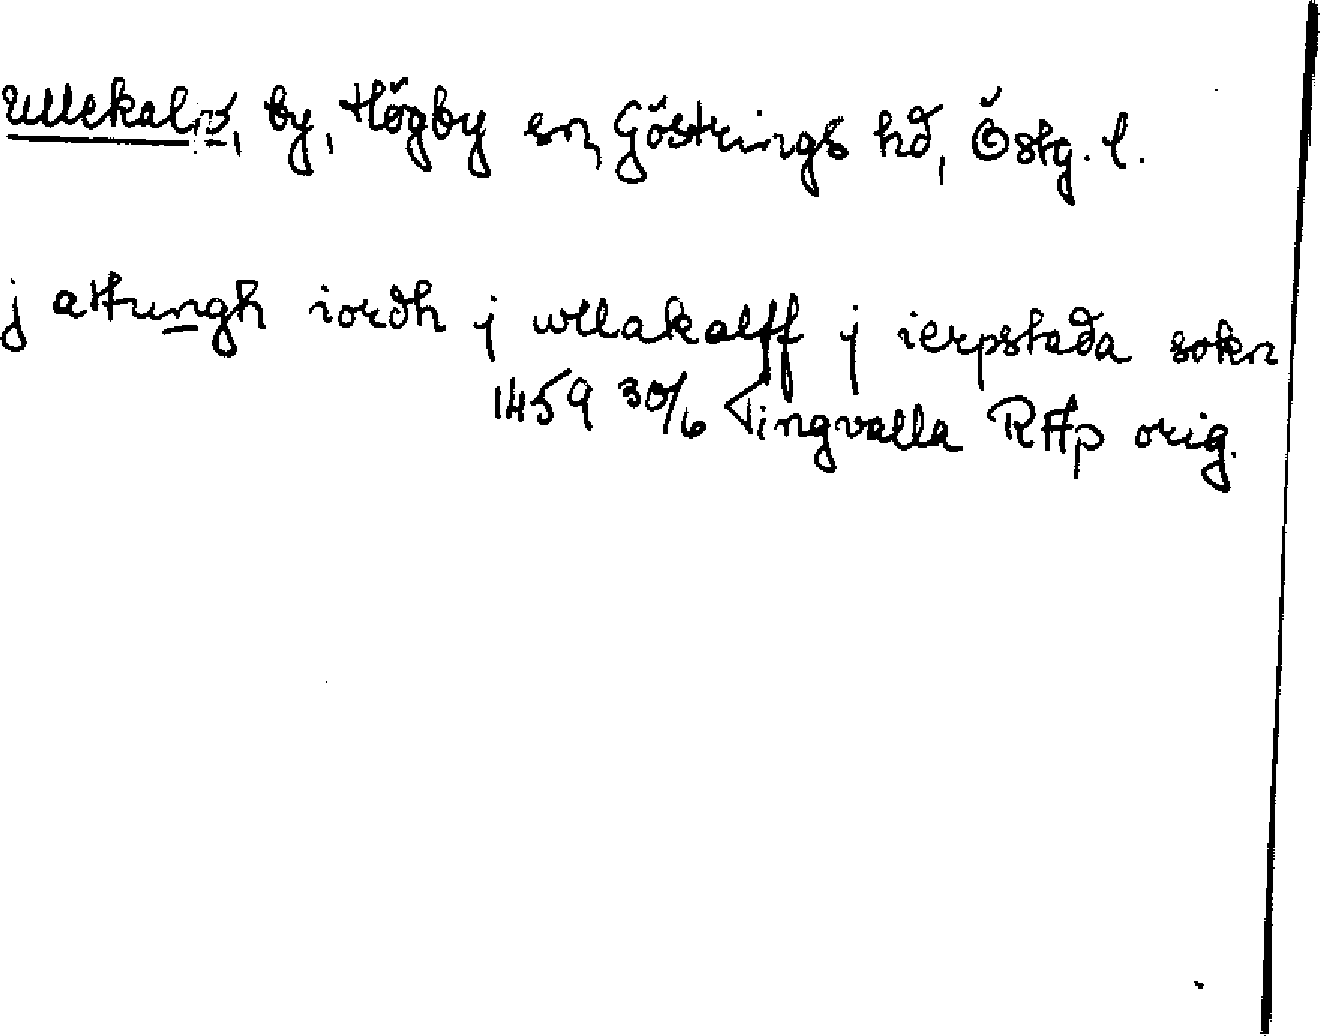 Ullekalv, by, Högby sn, Göstrings hd, Östg. l.
j attungh iordh j wllakalff j ierpstada sokn
1459 30/6 Tingvalla RAp orig.